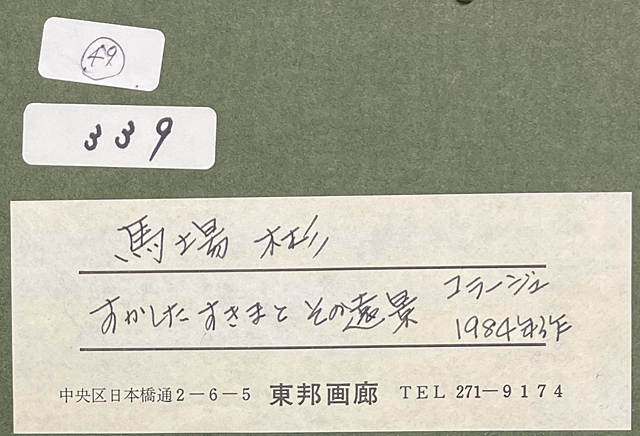 49
339
馬場 彬
すかした すきまと その遠景 コラージュ
1984年作
中央区日本橋通2-6-5 東邦画廊 TEL 271-9174